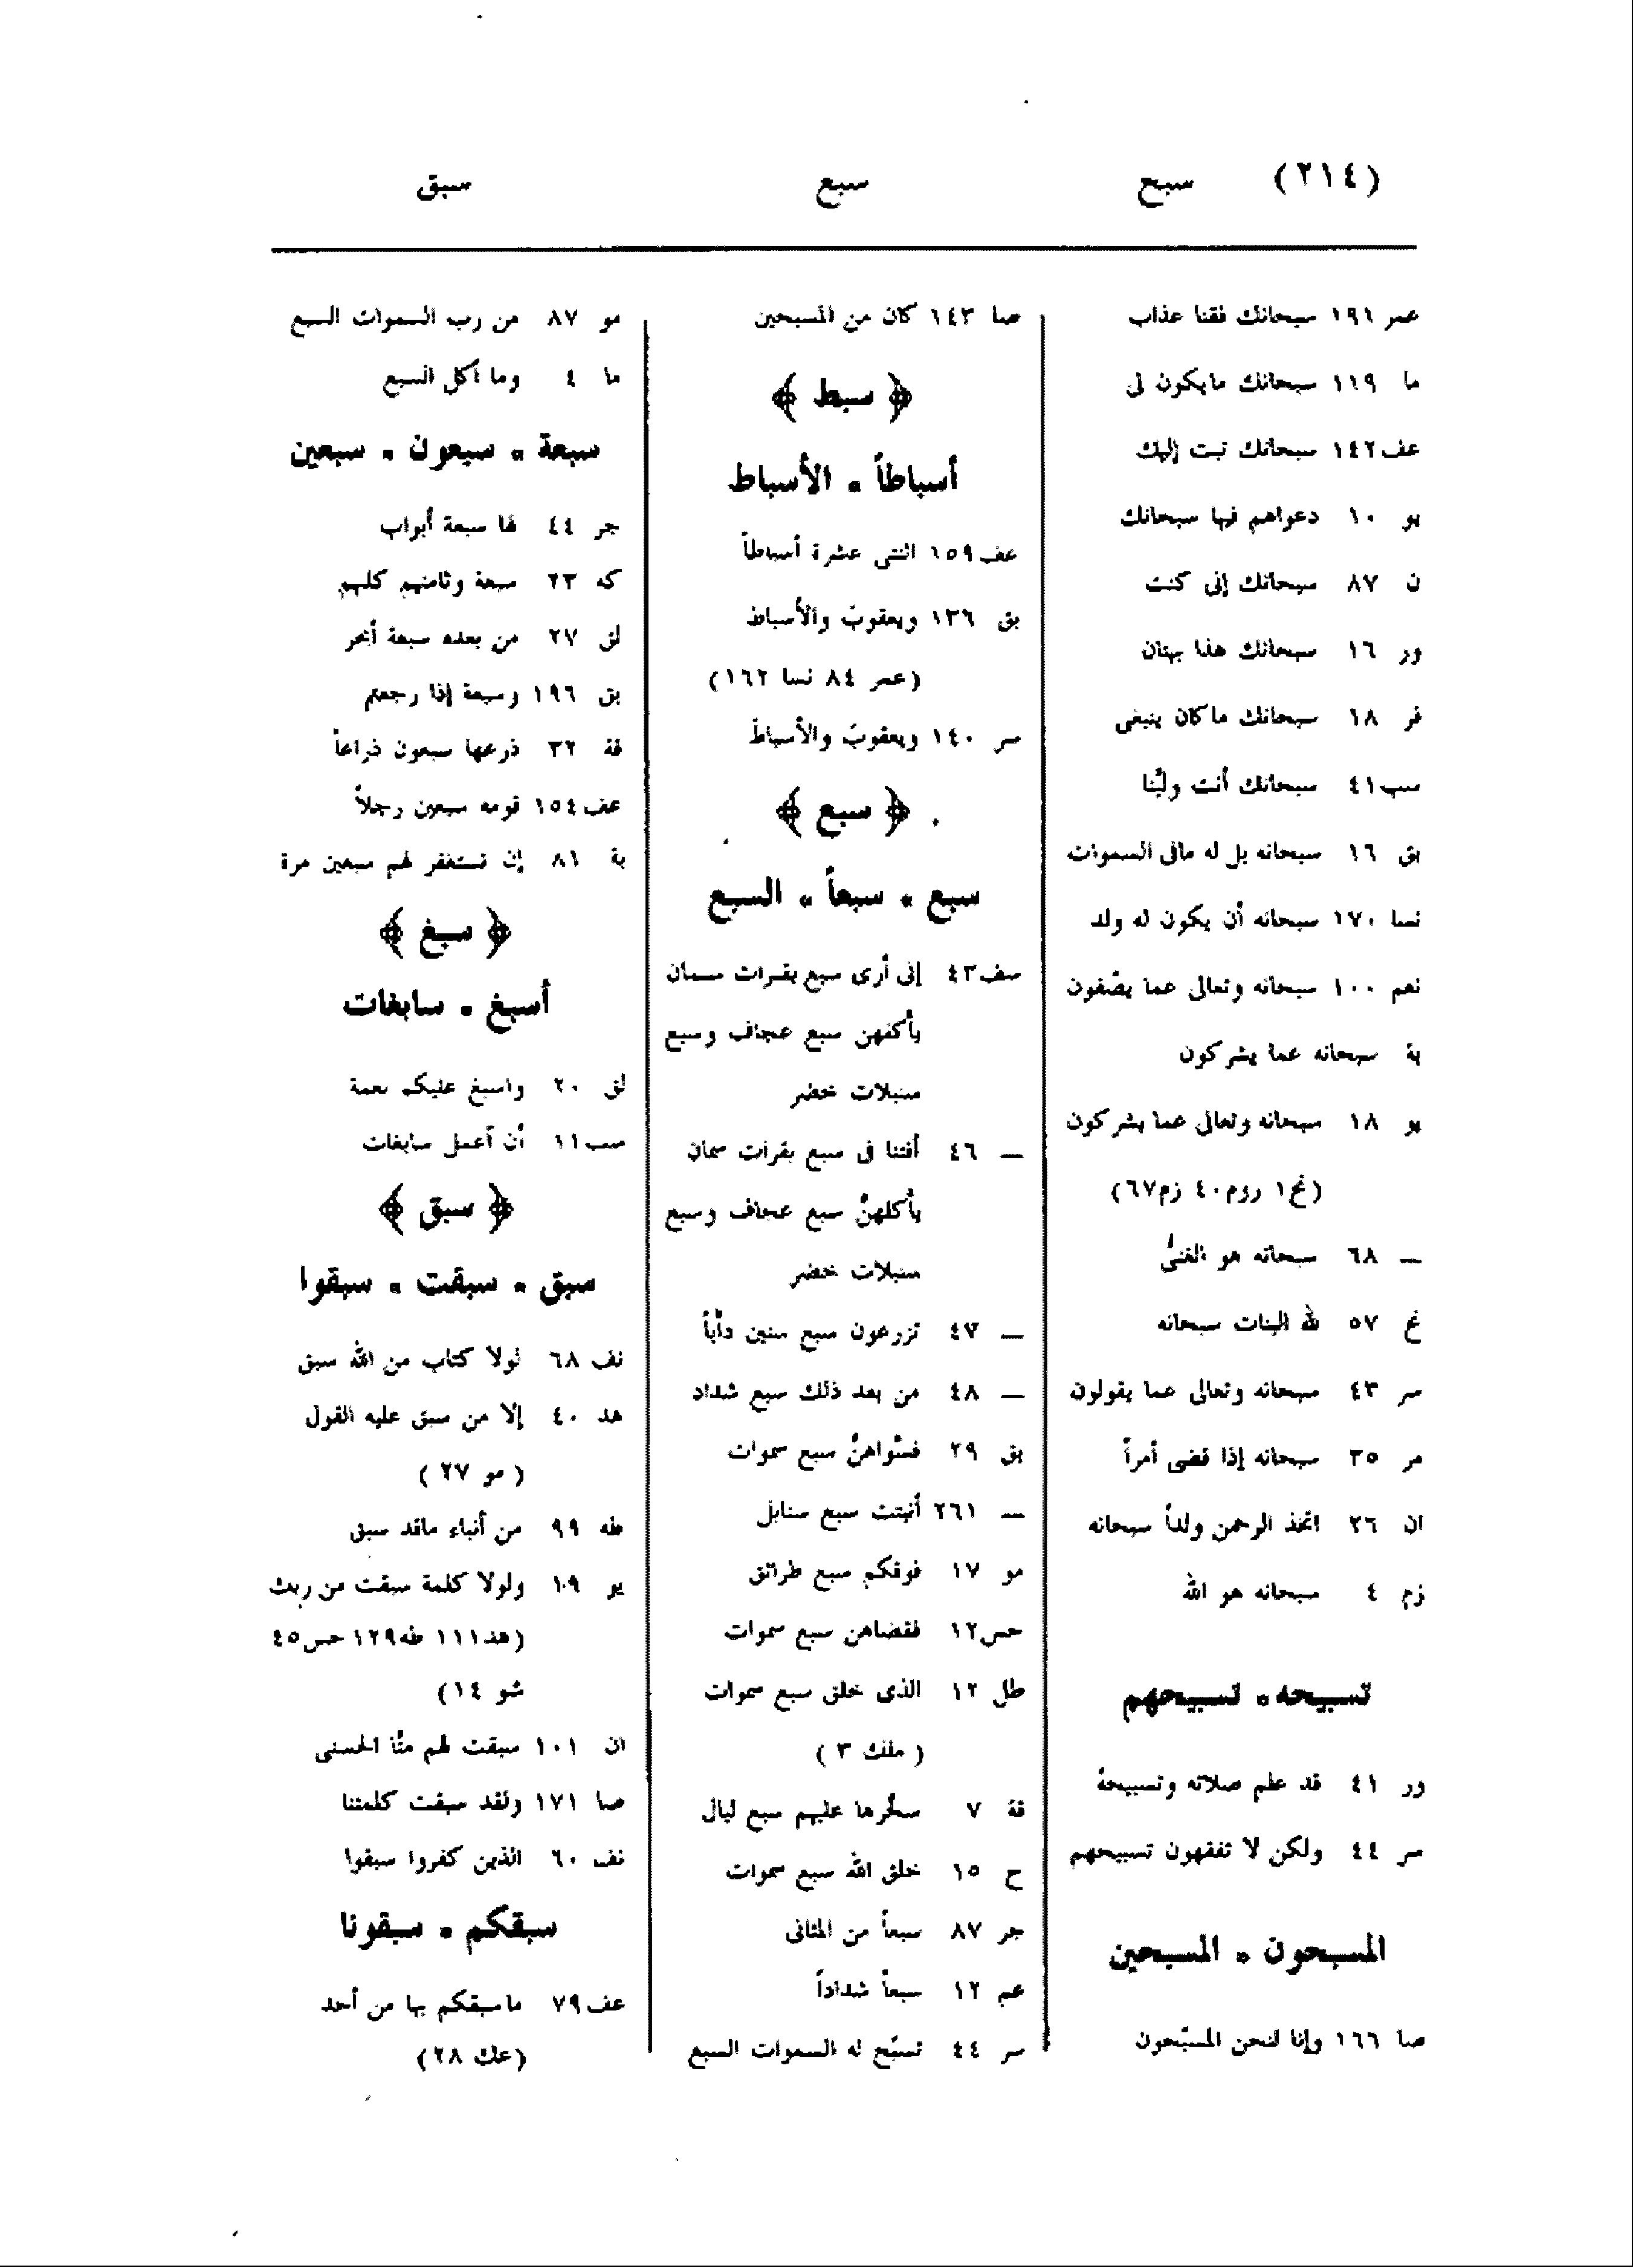 (٢١٤) سبح سبع سبق
عمر ١٩١ سبحانك فقنا عذاب
ما ١١٩ سبحانك مايكون لى
عف ١٤٢ سبحانك تبت إليك
يو ١٠ دعواهم فيها سبحانك
ن ٨٧ سبحانك إنى كنت
ور ١٦ سبحانك هذا بهتان
فر ١٨ سبحانك ما كان ينبغى
سب ٤١ سبحانك أنت وليُّنا
بق ١٦ سبحانه بل له مافى السموات
نسا ١٧٠ سبحانه أن يكون له ولد
نعم ١٠٠ سبحانه وتعالى عما يصفون
بة سبحانه عما يشركون
يو ١٨ سبحانه وتعالى عما يشركون
(نح ١ روم ٤٠ زم ٦٧)
— ٦٨ سبحانه هو الغنىُّ
نح ٥٧ لله البنات سبحانه
سر ٤٣ سبحانه وتعالى عما يقولون
مر ٣٥ سبحانه إذا قضى أمراً
ان ٢٦ اتخذ الرحمن ولداً سبحانه
زم ٤ سبحانه هو الله
تسبيحه ، تسبيحهم
ور ٤١ قد علم صلاته وتسبيحهُ
سر ٤٤ ولكن لا تفقهون تسبيحهم
المسبحون ، المسبحين
صا ١٦٦ وإنا لنحن المسبّحون
صا ١٤٣ كان من المسبحين
﴿ سبط ﴾
أسباطاً ، الأسباط
عف ١٥٩ اثنتى عشرة أسباطاً
بق ١٣٦ ويعقوبَ والأسباط
(عمر ٨٤ نسا ١٦٢)
سر ١٤٠ ويعقوبَ والأسباطَ
﴿ سبع ﴾
سبع ، سبعاً ، السبع
سف ٤٣ إنى أرى سبع بقرات سمان
يأكلهن سبع عجاف وسبع
سنبلات خضر
— ٤٦ أفتنا فى سبع بقرات سمان
يأكلهنّ سبع عجاف وسبع
سنبلات خضر
— ٤٧ تزرعون سبع سنين دأباً
— ٤٨ من بعد ذلك سبع شداد
بق ٢٩ فسوّاهنّ سبع سموات
— ٢٦١ أنبتت سبع سنابل
مو ١٧ فوقكم سبع طرائق
حس ١٢ فقضاهن سبع سموات
طل ١٢ الذى خلق سبع سموات
( ملك ٣ )
قة ٧ سخّرها عليهم سبع ليال
ح ١٥ خلق الله سبع سموات
جر ٨٧ سبعاً من المثانى
عم ١٢ سبعاً شداداً
سر ٤٤ تسبّح له السموات السبع
مو ٨٧ من رب السموات السبع
ما ٤ وما أكل السبع
سبعة ، سبعون ، سبعين
جر ٤٤ لها سبعة أبواب
كه ٢٣ سبعة وثامنهم كلبهم
لق ٢٧ من بعده سبعة أبحر
بق ١٩٦ وسبعة إذا رجعتم
قة ٣٢ ذرعها سبعون ذراعاً
عف ١٥٤ قومه سبعين رجلاً
بة ٨١ إن تستغفر لهم سبعين مرة
﴿ سبغ ﴾
أسبغ ، سابغات
لق ٢٠ وأسبغ عليكم نعمة
سب ١١ أن أعمل سابغات
﴿ سبق ﴾
سبق ، سبقت ، سبقوا
نف ٦٨ لولا كتاب من الله سبق
هد ٤٠ إلا من سبق عليه القول
( مو ٢٧ )
طه ٩٩ من أنباء ماقد سبق
يو ١٩ ولولا كلمة سبقت من ربك
(هد ١١١ طه ١٢٩ حس ٤٥
شو ١٤)
ان ١٠١ سبقت لهم منّا الحسنى
صا ١٧١ ولقد سبقت كلمتنا
نف ٦٠ الذين كفروا سبقوا
سبقكم ، سبقونا
عف ٧٩ ماسبقكم بها من أحد
(عك ٢٨)